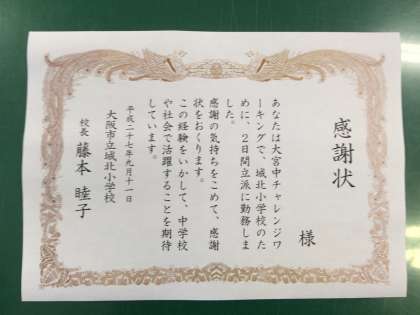 感謝状
様
あなたは大宮中チャレンジワ
ーキングで、城北小学校のた
めに、2日間立派に勤務しま
した。
感謝の気持ちをこめて、感謝
状をおくります。
この経験をいかして、中学校
や社会で活躍することを期待
しています。
平成二十七年九月十一日
大阪市立城北小学校
校長 藤本 睦子